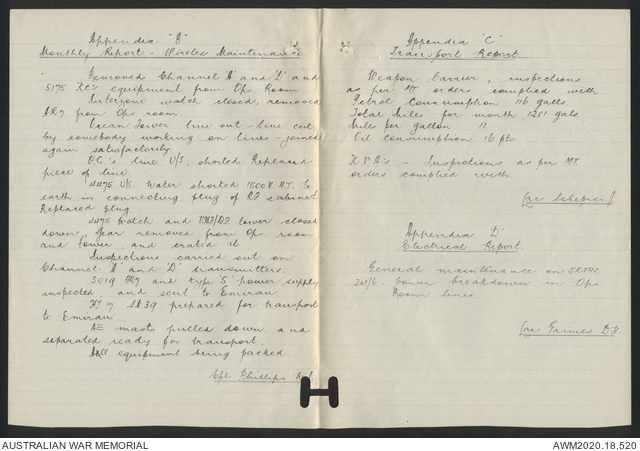 Appendix "B"
Monthly Report - Wireless Maintenance
Removed Channel 'A' and 'D' and
5175 KC's equipment from Ops Room
Interzone watch closed, removed
AR7 from Ops room
Ocean Tower line out - line cut
by somebody working on lines - joined
again satisfactorily.
O.C.'s line U/S, shorted Replaced
piece of line.
4475 U/S. Water shorted 1500V. HT. to
earth in connecting plug of RF cabinet
Replaced plug.
4475 Watch and tower closed
down, gear removed from Ops. room
and tower, and crated it.
Inspections carried out on
Channel 'A' and 'D' transmitters.
5019 AR7 and type 'S' power supply
inspected, and sent to Emirau.
prepared for transport
to Emirau
AE masts pulled down and
separated ready for transport.
All equipment being packed
Cpl Phillips
Appendix "C"
Transport Report.
Weapon Carrier, inspections
as per MT orders complied with
Petrol Consumption 116 galls.
Total Miles for month 1281 gals.
Miles per Gallon 11
Oil consumption 16 pts.
- Inspections as per MT.
orders complied with.
Lac
Appendix 'D'
Electrical Report.
General maintenance on
power breakdown in Ops
Room lines
Lac Grimes
AUSTRALIAN WAR MEMORIAL
AWM2020.18.520